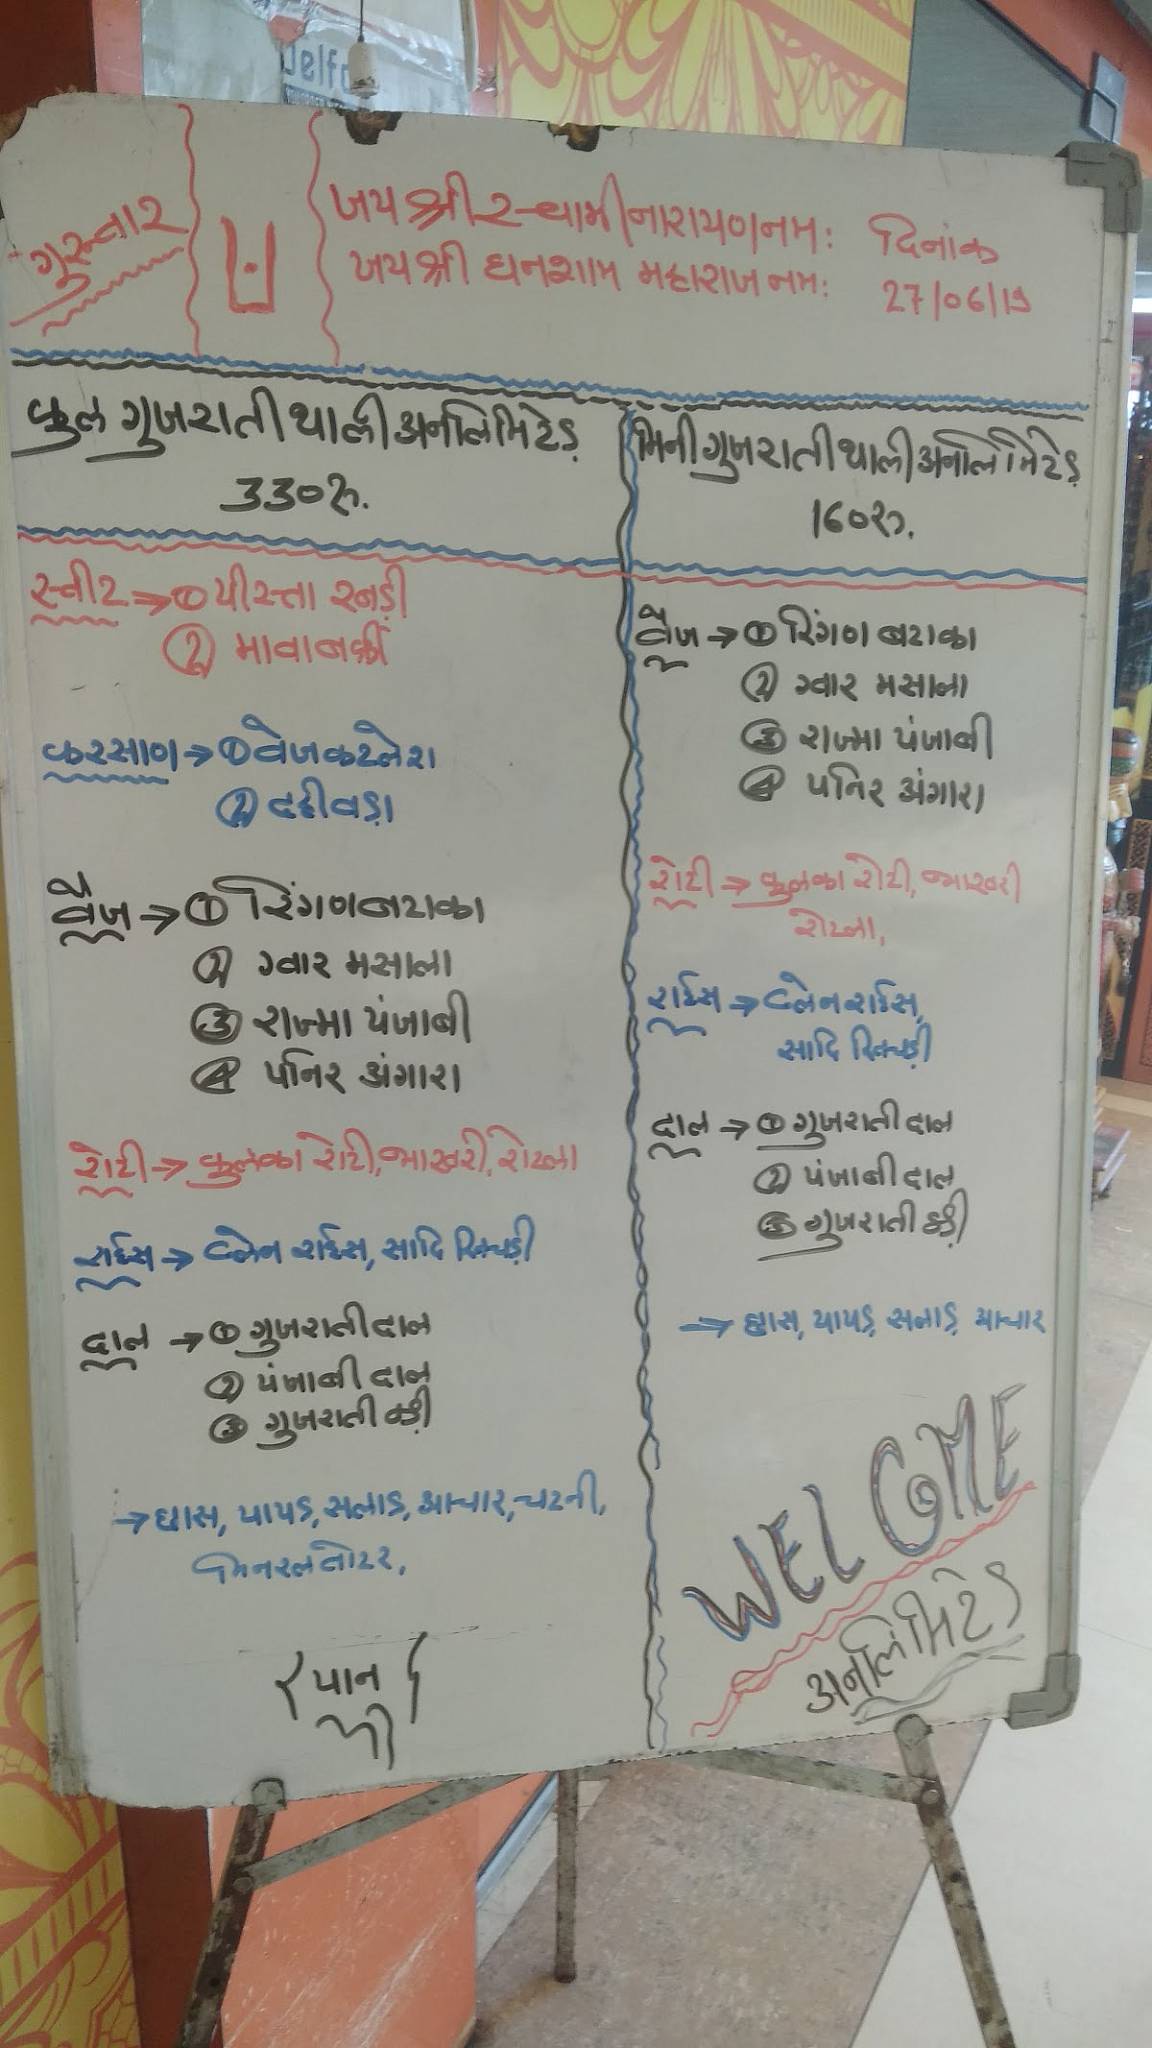 ગુરુવાર
જય શ્રી સ્વામીનારાયણ નમ: દિનાંક
જય શ્રી ઘનશામ મહારાજ નમ: 27/06/19
ફુલ ગુજરાતી થાલી અનલિમિટેડ
330રૂ.
મિની ગુજરાતી થાલી અનલિમિટેડ
160રૂ.
સ્વીટ → ① પીસ્તા રબડી
② માવાબર્ફી
ફરસાણ → ① વેજ કટલેશ
② દહીવડા
વેજ → ① રિંગણ બટાકા
② ગ્વાર મસાલા
③ રાજમા પંજાબી
④ પનિર અંગારા
રોટી → ફુલકા રોટી, ભાખરી, રોટલા
રાઈસ → પ્લેન રાઈસ, સાદિ ખિચડી
દાલ → ① ગુજરાતી દાલ
② પંજાબી દાલ
③ ગુજરાતી કઢી
→ છાસ, પાપડ, સલાડ, આચાર, ચટની,
મિનરલ વોટર,
(પાન)
વેજ → ① રિંગણ બટાકા
② ગ્વાર મસાલા
③ રાજમા પંજાબી
④ પનિર અંગારા
રોટી → ફુલકા રોટી, ભાખરી
રોટલા,
રાઈસ → પ્લેન રાઈસ,
સાદિ ખિચડી
દાલ → ① ગુજરાતી દાલ
② પંજાબી દાલ
③ ગુજરાતી કઢી
→ છાસ, પાપડ, સલાડ, આચાર
WELCOME
અનલિમિટેડ